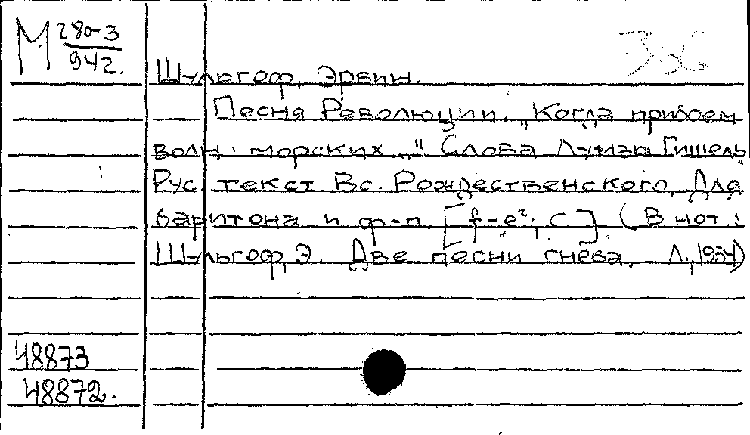 М 280-3
942.
Шульгоф, Эрвин.
Песня Революции. „Когда прибоем
волн морских..." Слова Луиза Мишель
Рус. текст Вс. Рождественского. Для
баритона и ф-п. [f-e²; c] (В нот.:
Шульгоф, Э. Две песни гнева. Л., 1934)
48873
48872.